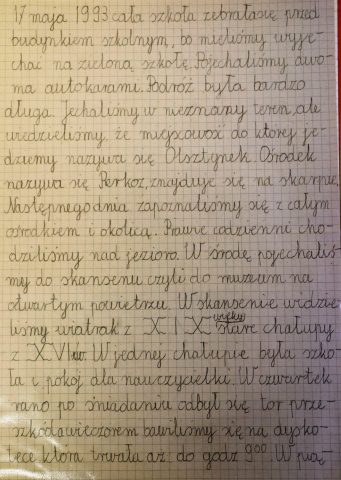 17 maja 1993 cała szkoła zebrała się przed
budynkiem szkolnym, bo mieliśmy wyje-
chać na zieloną szkołę. Pojechaliśmy dwo-
ma autokarami. Podróż była bardzo
długa. Jechaliśmy w nieznany teren, ale
wiedzieliśmy, że miejscowość do której je-
dziemy nazywa się Olsztynek. Ośrodek
nazywa się Perkoz, znajduje się na skarpie.
Następnego dnia zapoznaliśmy się z całym
ośrodkiem i okolicą. Prawie codzienni cho-
dziliśmy nad jezioro. W środę pojechaliś-
my do skansenu czyli do muzeum na
otwartym powietrzu. W skansenie widzie
liśmy wiatrak z XIX wieku stare chałupy
z XVIw. W jednej chałupie była szko-
ła i pokój dla nauczycielki. W czwartek
rano po śniadaniu odbył się tor prze-
szkód a wieczorem bawiliśmy się na dysko-
tece która trwała aż do godz 9⁰⁰. W pią-